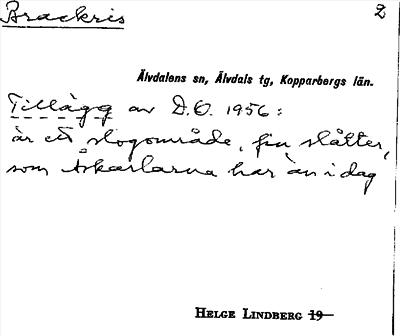 Brackris 2
Älvdalens sn, Älvdals tg, Kopparbergs län.
Tillägg av D.O. 1956:
är ett slogområde, fin slåtter,
som Åskarlarna har än i dag
HELGE LINDBERG 19